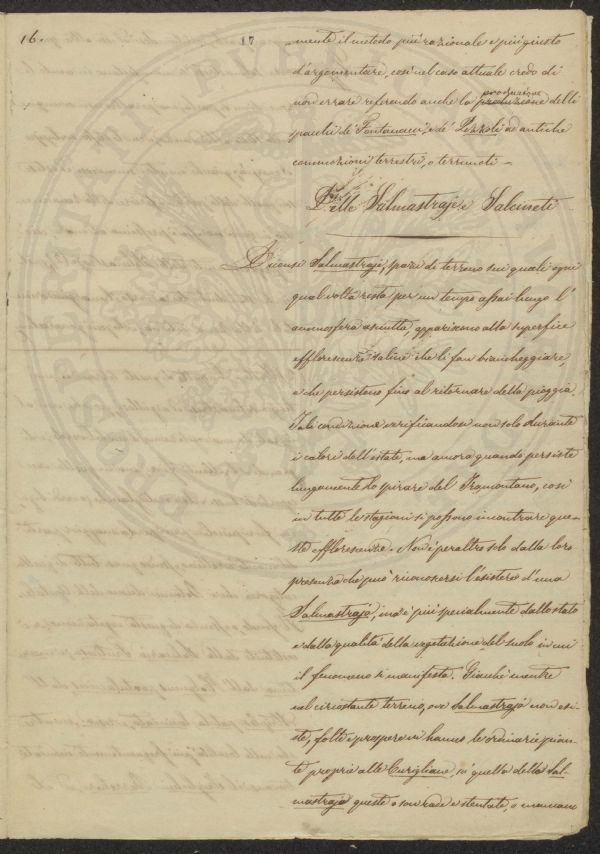 16.
17
-mente il metodo più razionale e più giusto
d'argomentare, così nel caso attuale credo di
non errare referendo anche la produzione delli
produzione
spacchi de' Fontanacci, e de' Pozzoli ad antiche
commozioni terrestri, o terremoti —
Delle Salmastraje, e Salcineti
Diconsi Salmastraje, spazi di terreno sui quali ogni
qual volta resta per un tempo assai lungo l'
atmosfera asciutta, appariscono alla superfice
efflorescenze saline che li fan biancheggiare,
e che persistono fino al ritornare della pioggia.
Tale condizione verificandosi non solo durante
i calori dell'estate, ma ancora quando persiste
lungamente lo spirare del Tramontano, così
in tutte le stagioni si possono incontrare que-
ste efflorescenze. Non è peraltro solo dalla loro
presenza che può riconoscersi l'esistere d'una
Salmastraja, ma è più specialmente dallo stato
e dalla qualità della vegetazione del suolo in cui
il fenomeno si manifesta. Giacchè mentre
nel circostante terreno, ove Salmastraja non esi-
ste, folte e prospere vi hanno le ordinarie pian-
te proprie alle Curigliane, in quello della Sal-
mastraja queste o son rade e stentate, o mancano